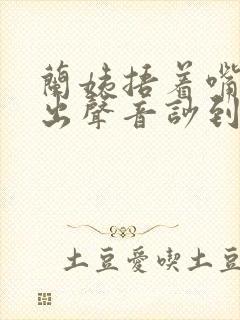 蘭姨捂着嘴
出聲音訬到
土豆愛喫土豆